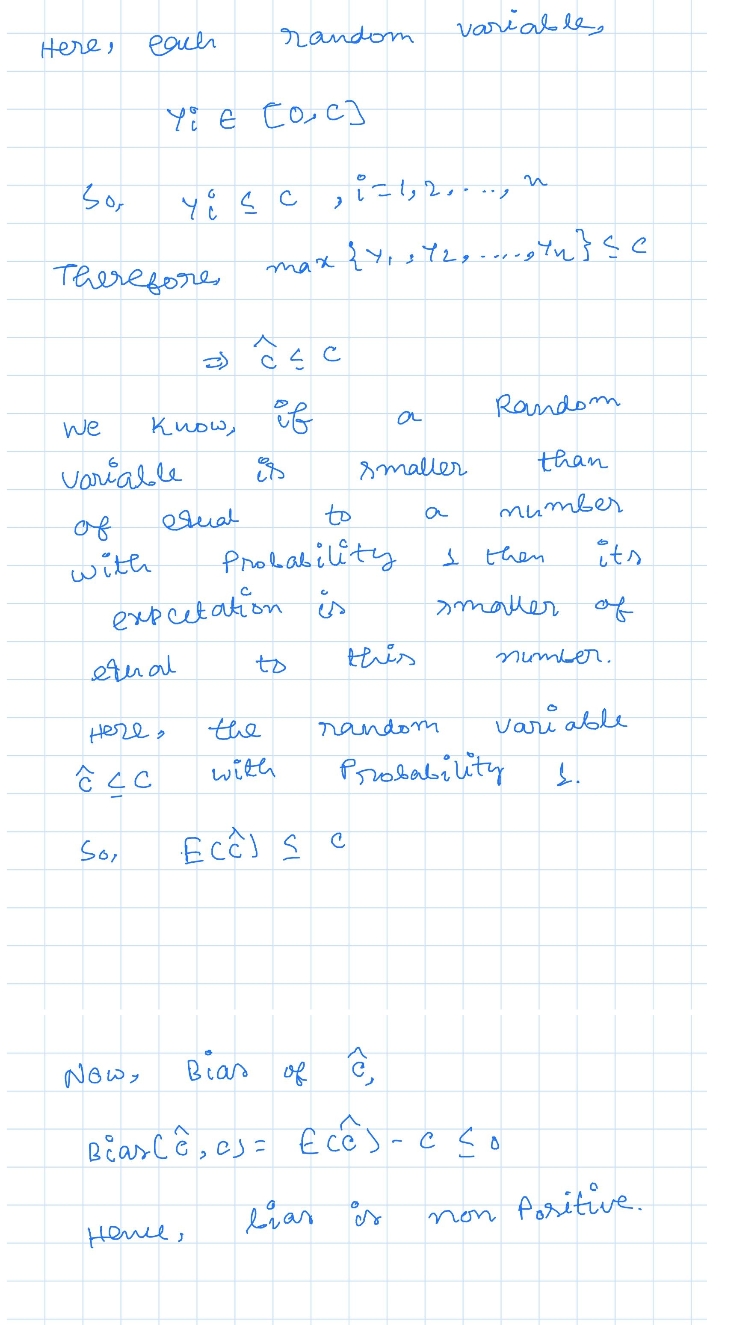 Here, each random variable,
Yi ∈ [0, c]
So, Yi ≤ c , i=1,2,...,n
Therefore, max {Y1, Y2, ....., Yn} ≤ c
⇒ ĉ ≤ c
We know, if a Random
variable is smaller than
of equal to a number
with Probability 1 then its
expcetation is smaller of
equal to this number.
Here, the random variable
ĉ ≤ c with Probability 1.
So, E(ĉ) ≤ c
Now, Bias of ĉ,
Bias(ĉ, c) = E(ĉ) - c ≤ 0
Hence, bias is non Positive.